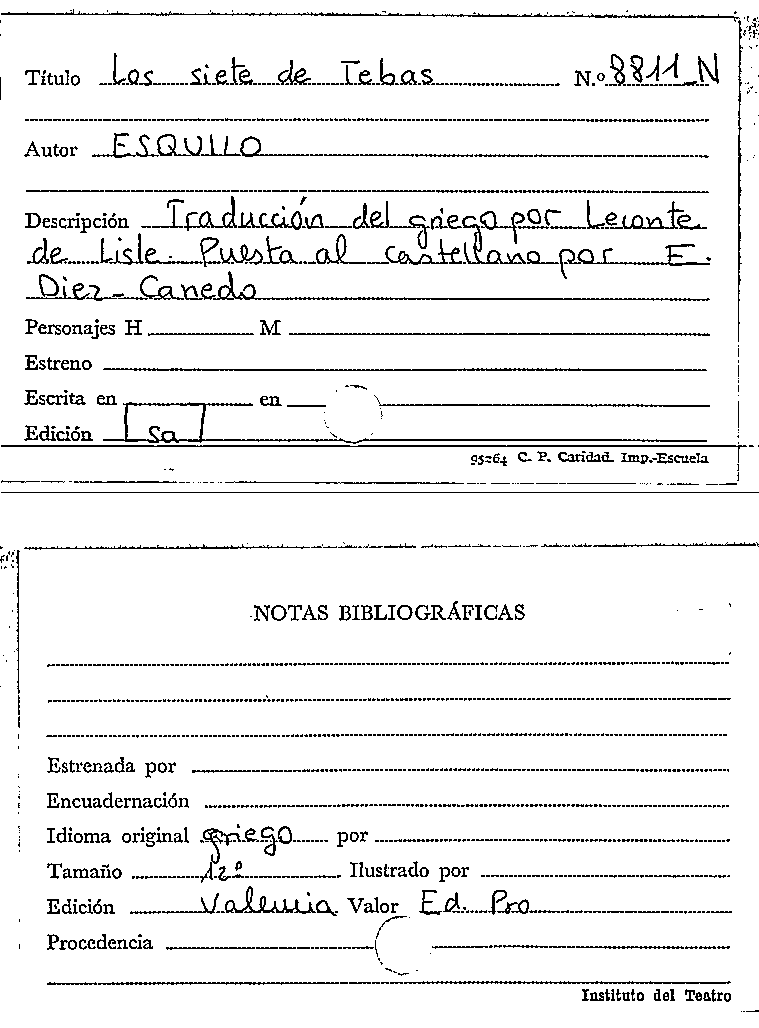 Título Los siete de Tebas N.º 8811_N
Autor ESQUILO
Descripción Traducción del griego por Leconte
de Lisle. Puesta al castellano por E.
Diez-Canedo
Personajes H M
Estreno
Escrita en en
Edición sa
95264 C. P. Caridad. Imp.-Escuela
NOTAS BIBLIOGRÁFICAS
Estrenada por
Encuadernación
Idioma original griego por
Tamaño 12º Ilustrado por
Edición Valencia Valor Ed. Pro
Procedencia
Instituto del Teatro